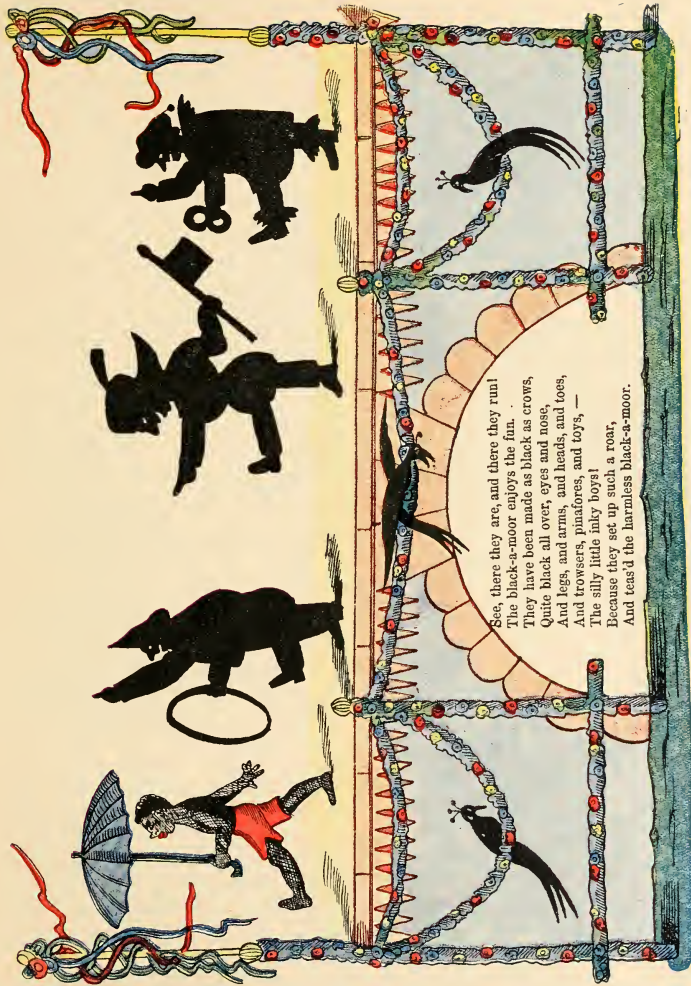 See, there they are, and there they run!
The black-a-moor enjoys the fun.
They have been made as black as crows,
Quite black all over, eyes and nose,
And legs, and arms, and heads, and toes,
And trowsers, pinafores, and toys,—
The silly little inky boys!
Because they set up such a roar,
And teas'd the harmless black-a-moor.